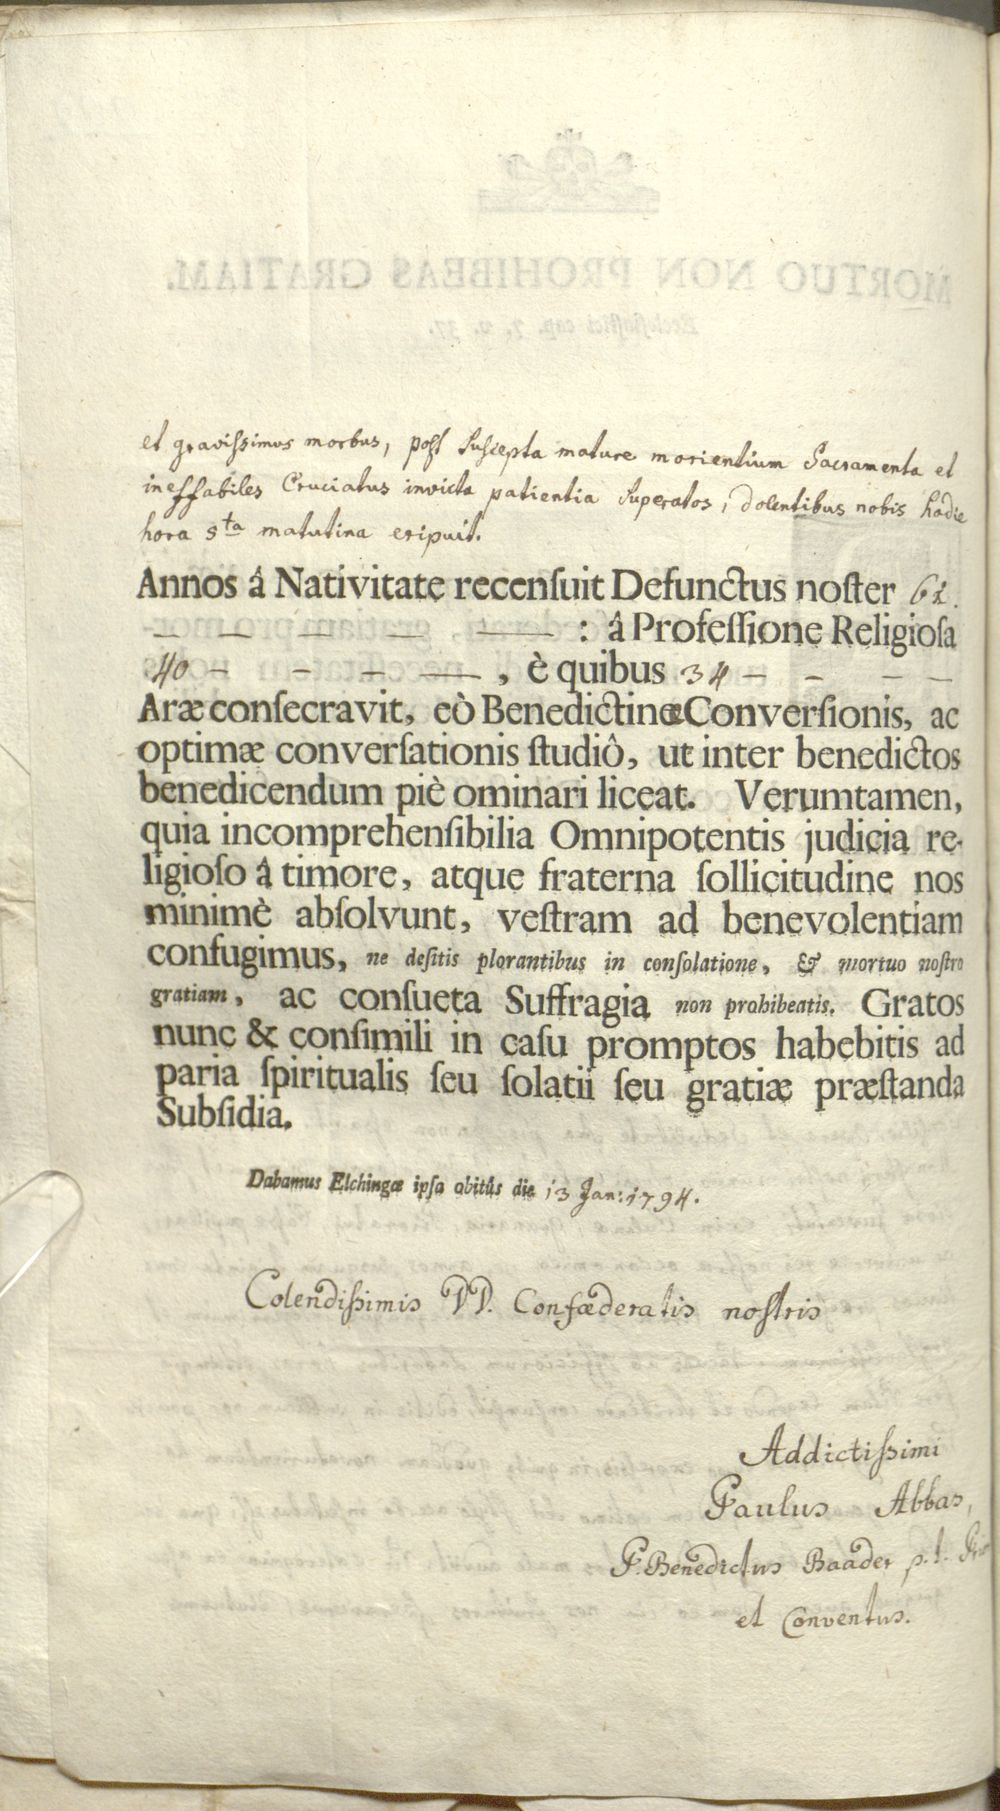 et gravissimus morbus, post suscepta mature morientium Sacramenta et
ineffabiles Cruciatus invicta patientia superatos, dolentibus nobis hodie
hora 5ta matutina eripuit.
Annos â Nativitate recenſuit Defunctus noſter 61.
— — — — — : â Profeſſione Religioſa
40 — — — — , è quibus 34 — — — —
Aræ conſecravit, eò Benedictinæ Converſionis, ac
optimæ converſationis ſtudiô, ut inter benedictos
benedicendum piè ominari liceat. Verumtamen,
quia incomprehenſibilia Omnipotentis judicia re-
ligioſo â timore, atque fraterna ſollicitudine nos
minimè abſolvunt, veſtram ad benevolentiam
confugimus, ne deſitis plorantibus in conſolatione, & mortuo noſtro
gratiam, ac conſueta Suffragia non prohibeatis. Gratos
nunc & conſimili in caſu promptos habebitis ad
paria ſpiritualis ſeu ſolatii ſeu gratiæ præſtanda
Subſidia.
Dabamus Elchingæ ipſa obitûs die 13 Jan: 1794.
Colendissimis DD. Confœderatis nostris
Addictissimi
Paulus Abbas,
P. Benedictus Baader p. t.
et Conventus.
MORTUO NON PROHIBEAS GRATIAM.
Eccleſiaſtici cap. 7. v. 37.